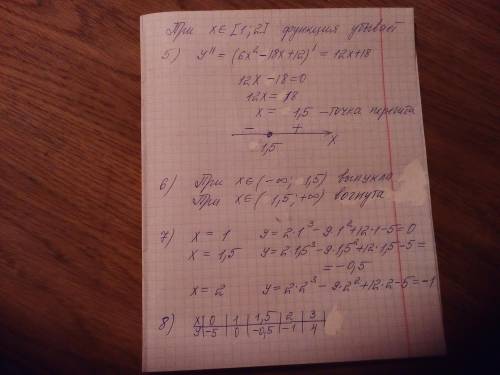 При x∈[1;2] функция убывает
5) y'' = (6x²-18x+12)' = 12x+18
12x-18=0
12x=18
x = 1,5 - точка перегиба
- +
1,5 x
6) При x∈(-∞; 1,5) выпукла
При x∈( 1,5; +∞) вогнута
7) x = 1 y=2·1³-9·1²+12·1-5=0
x = 1,5 y=2·1,5³-9·1,5²+12·1,5-5=
=-0,5
x = 2 y=2·2³-9·2²+12·2-5=-1
8) x 0 1 1,5 2 3
y -5 0 -0,5 -1 4